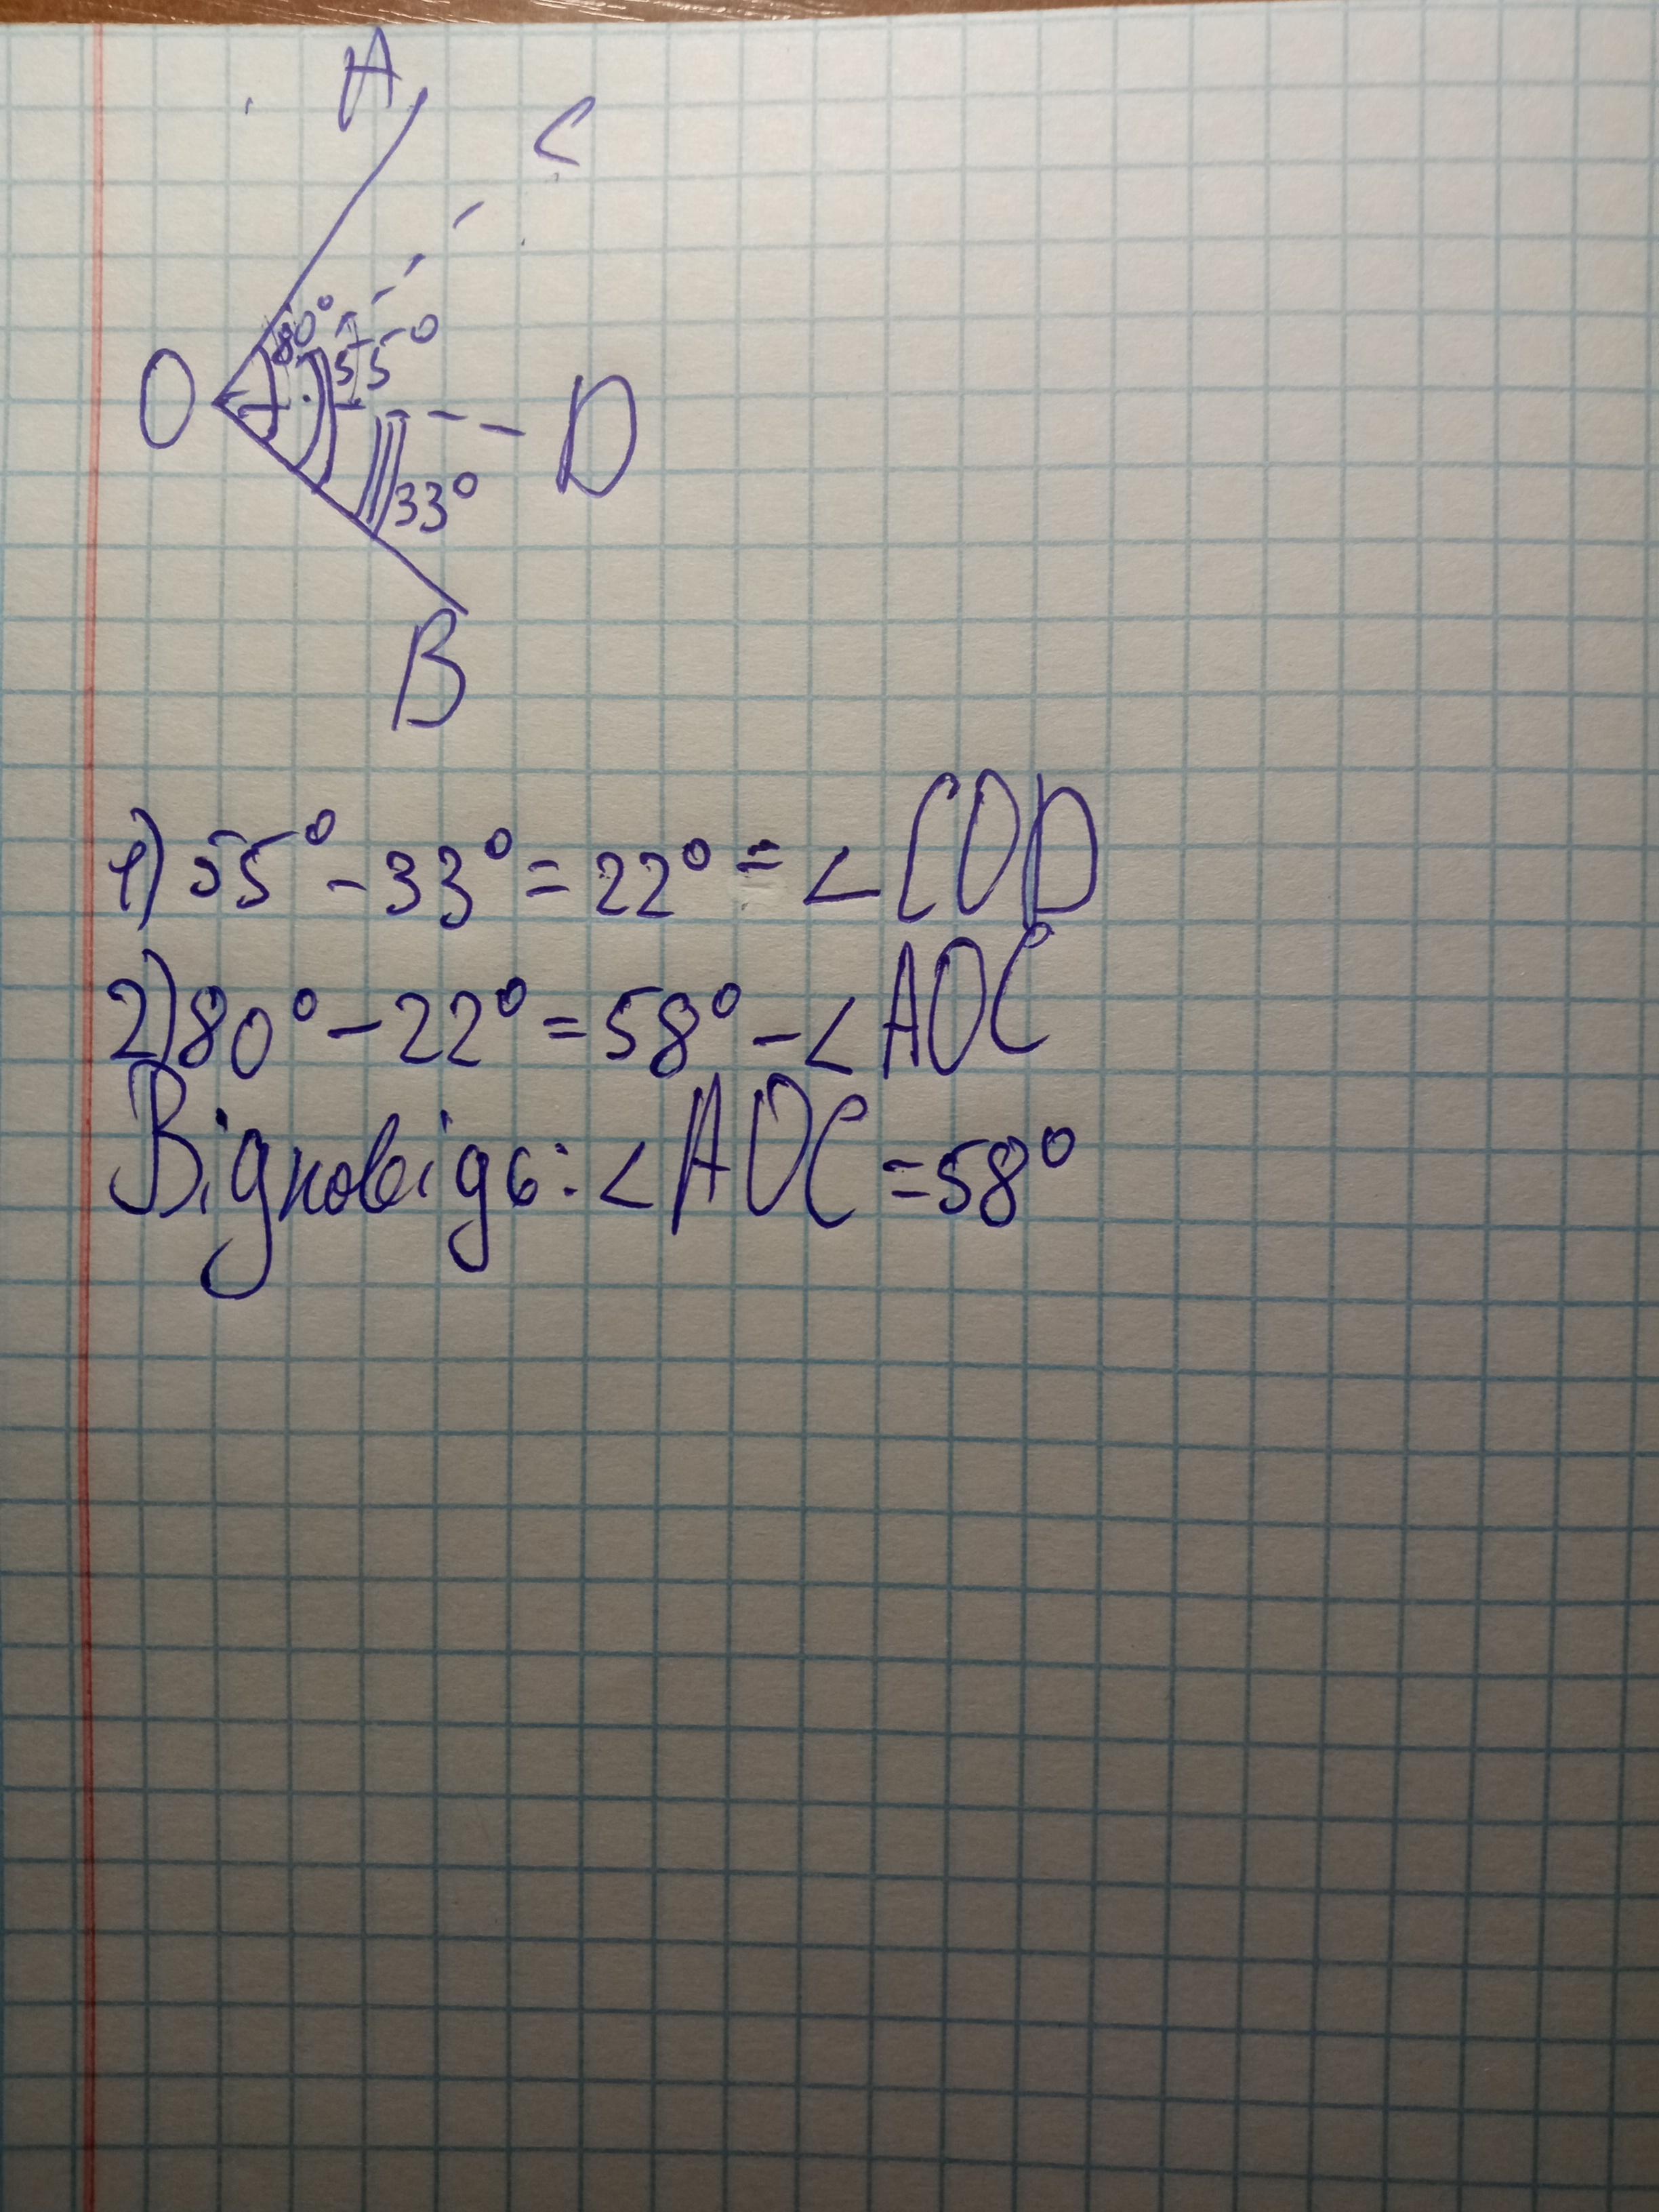 A
C
80°
55°
O
D
33°
B
1) 55° - 33° = 22° = ∠COD
2) 80° - 22° = 58° - ∠AOC
Відповідь: ∠AOC = 58°